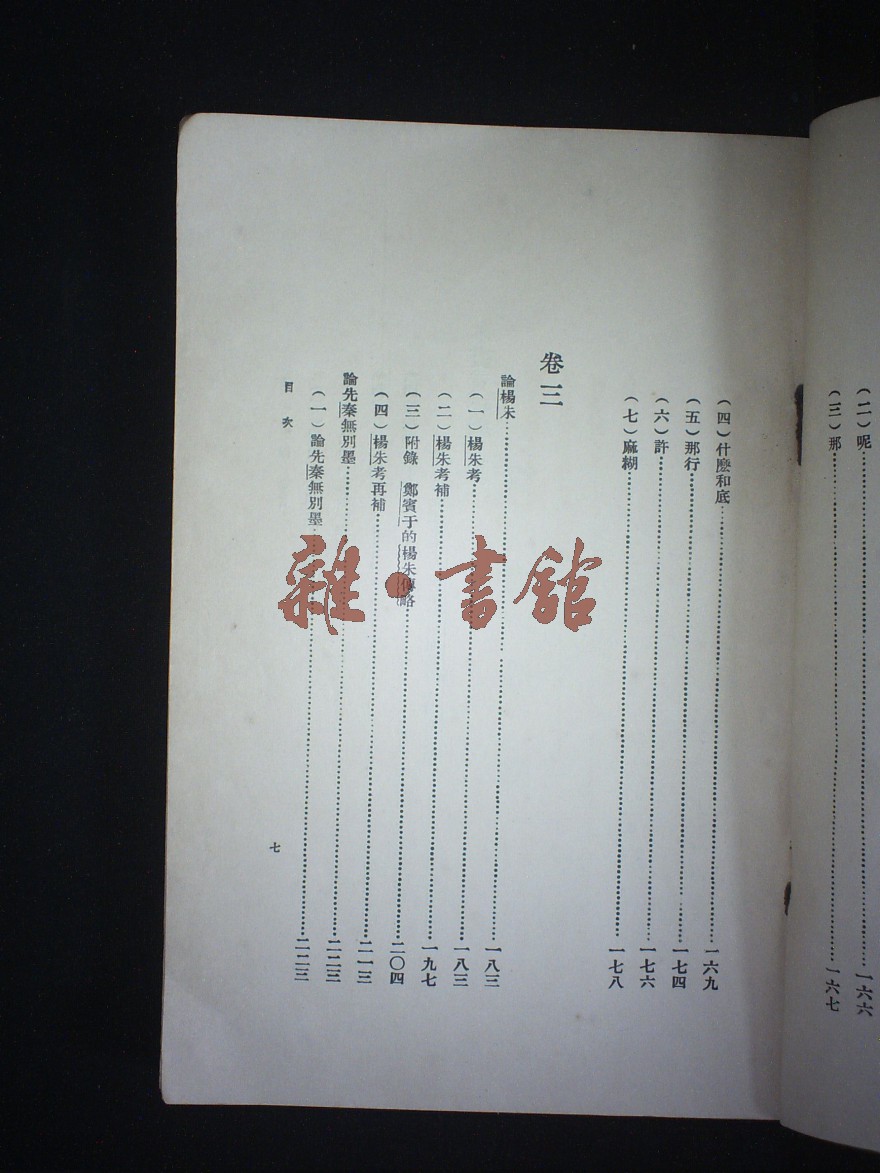 （二）呢……一六六
（三）那……一六七
（四）什麽和底……一六九
（五）那行……一七四
（六）許……一七六
（七）麻糊……一七八
卷三
論楊朱……一八三
（一）楊朱考……一八三
（二）楊朱考補……一九七
（三）附錄　鄭賓于的楊朱傳略……二〇四
（四）楊朱考再補……二一三
論先秦無別墨……二二三
（一）論先秦無別墨……二二三
目次
七
雜・書館